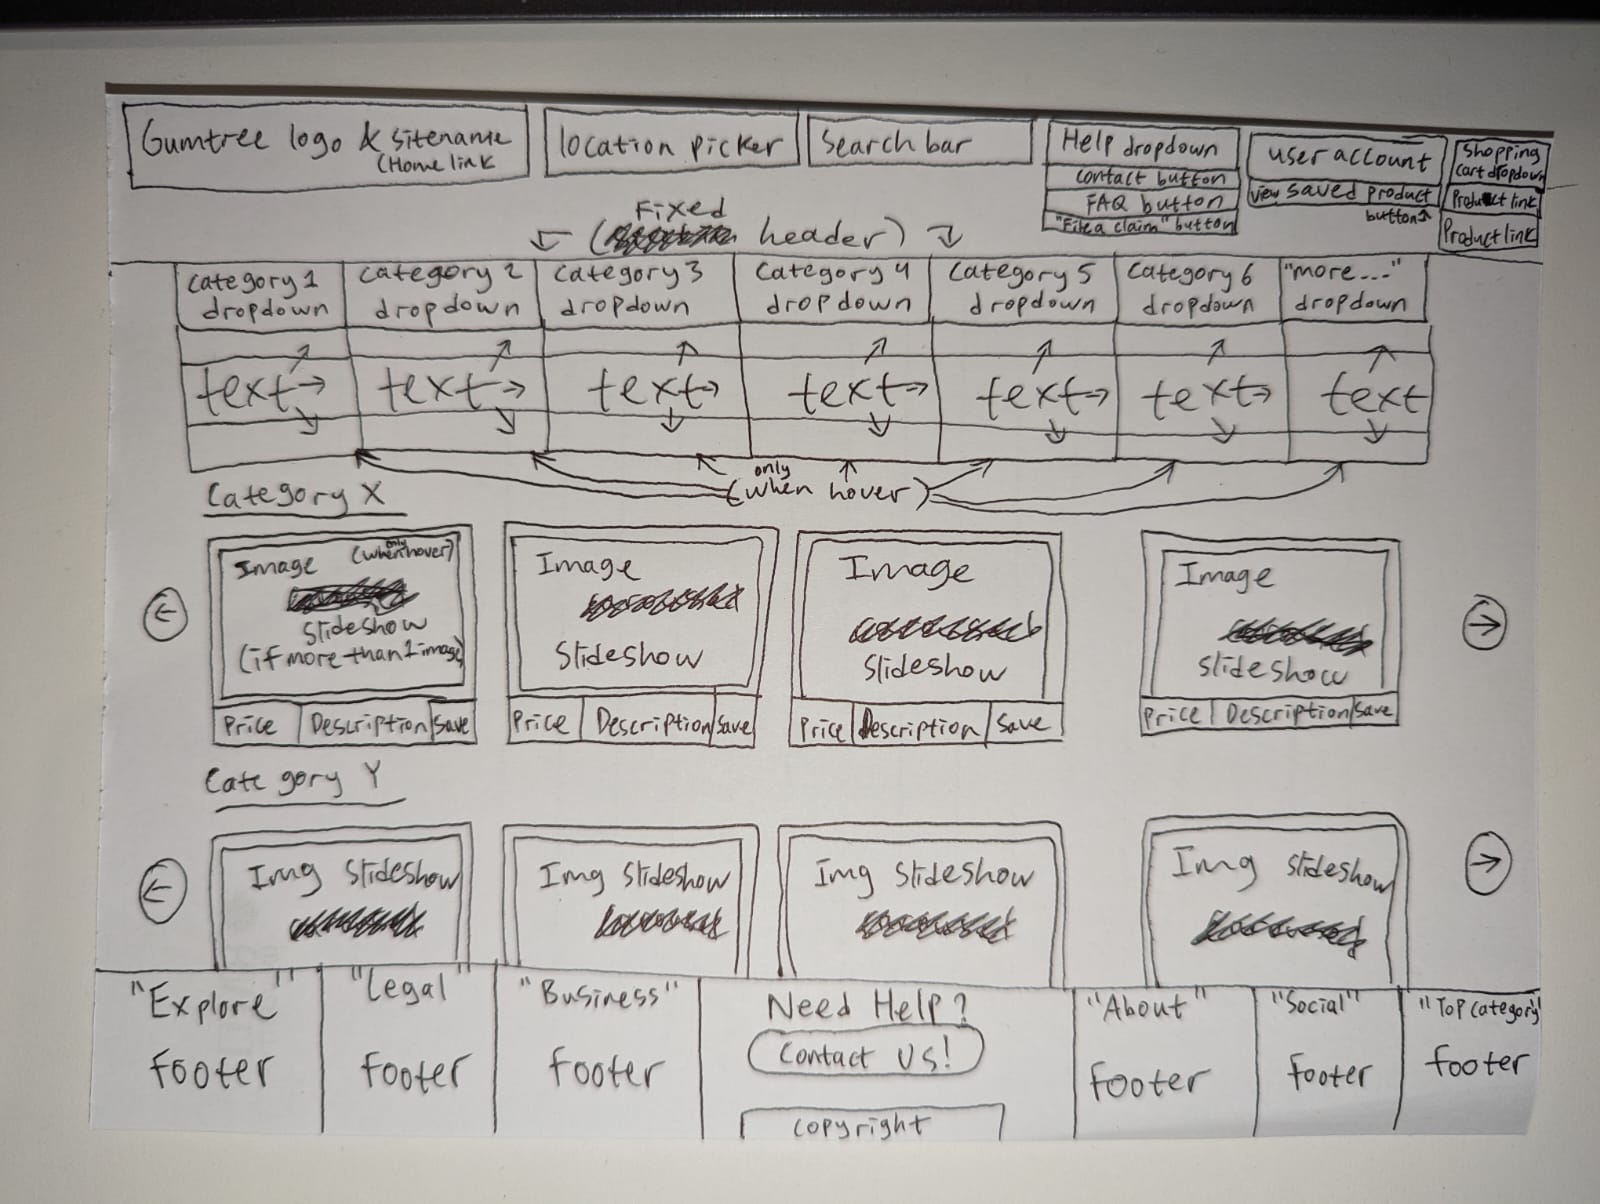 Gumtree logo & sitename
(Home link
location picker
Search bar
Help dropdown
contact button
FAQ button
"File a claim" button
user account
view saved product
button
Shopping
cart dropdown
Product link
Product link
Fixed
( header)
category 1
dropdown
category 2
dropdown
category 3
dropdown
category 4
dropdown
category 5
dropdown
category 6
dropdown
"more..."
dropdown
text
text
text
text
text
text
text
only
(when hover)
Category X
Image
only
(when hover)
Slideshow
(if more than 1 image)
Price
Description
Save
Image
Slideshow
Price
Description
Save
Image
Slideshow
Price
Description
Save
Image
Slideshow
Price
Description
Save
Category Y
Img Slideshow
Img Slideshow
Img Slideshow
Img Slideshow
"Explore"
Footer
"Legal"
Footer
"Business"
Footer
Need Help?
Contact Us!
Copyright
"About"
Footer
"Social"
Footer
"Top category"
Footer